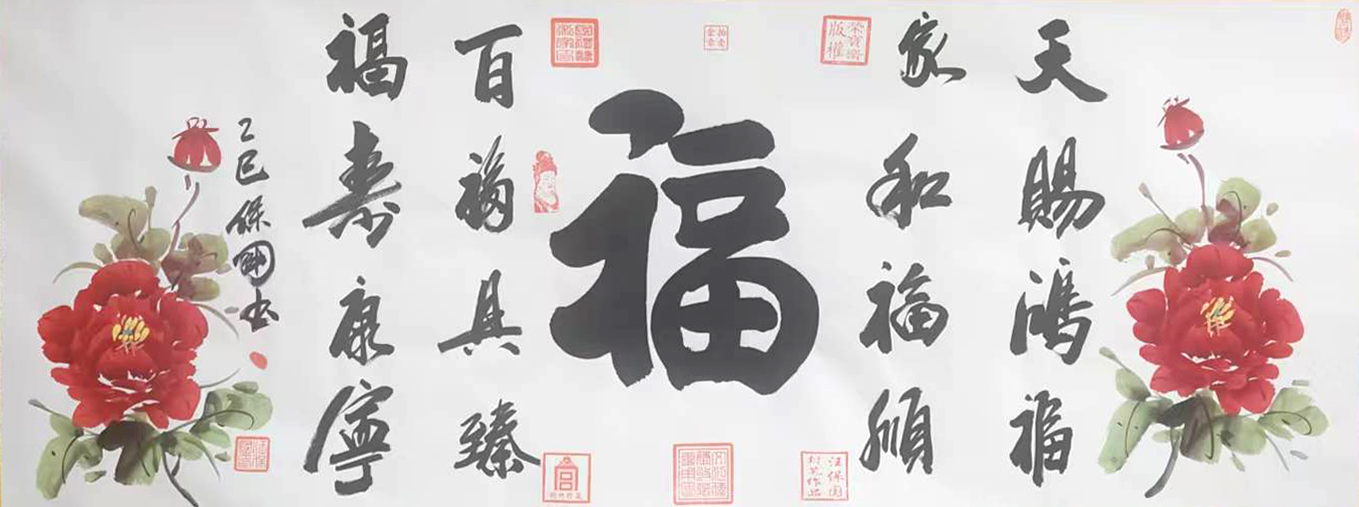 天賜鴻福
家和福順
福
百福具臻
福壽康寧
乙巳保國書
榮寶齋
版權
汪保國
封筆作品